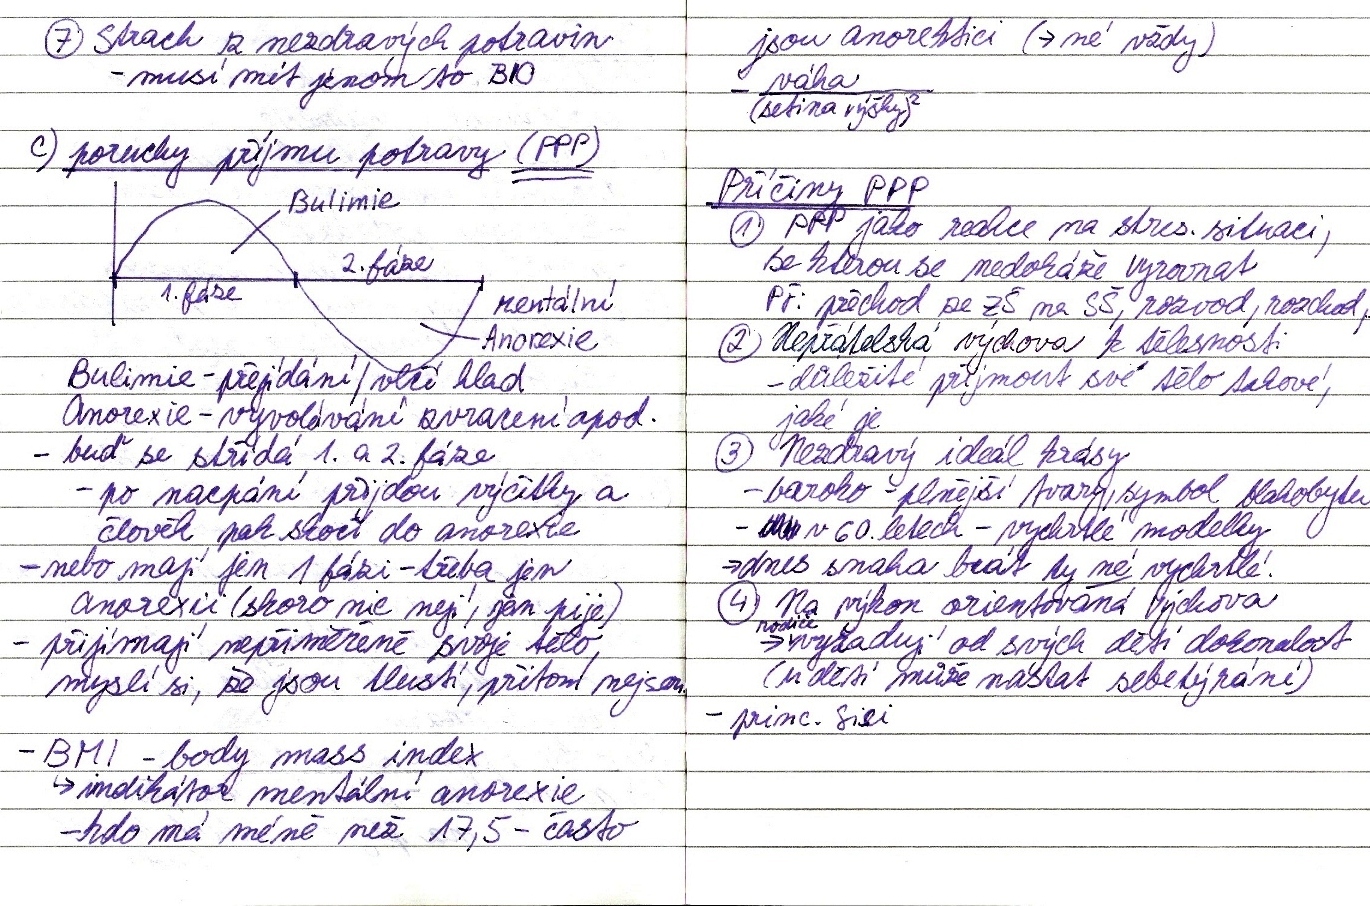 ⑦ Strach z nezdravých potravin
- musí mít jenom to BIO
C) poruchy příjmu potravy (PPP)
Bulimie
2. fáze
1. fáze
mentální
Anorexie
Bulimie - přejídání / vlčí hlad
Anorexie - vyvolávání zvracení apod.
- buď se střídá 1. a 2. fáze
- po nacpání přijdou výčitky a
člověk pak skočí do anorexie
- nebo mají jen 1 fázi - třeba jen
anorexii (skoro nic nejí, jen pije)
- přijímají nepřiměřeně svoje tělo,
myslí si, že jsou tlustí, přitom nejsou
- BMI - body mass index
↳ indikátor mentální anorexie
- kdo má méně než 17,5 - často
jsou anorektici (→ né vždy)
- váha
(setina výšky)²
Příčiny PPP
① PPP jako reakce na stres. situaci,
se kterou se nedokáže vyrovnat
Př: přechod ze ZŠ na SŠ, rozvod, rozchod,
② Nepřátelská výchova k tělesnosti
- důležité přijmout své tělo takové,
jaké je
③ Nezdravý ideál krásy
- baroko - plnější tvary, symbol blahobytu
- v 60. letech - vychrtlé modelky
→ dnes snaha brát ty né vychrtlé.
④ Na výkon orientovaná výchova
→ rodiče vyžadují od svých dětí dokonalost
(u dětí může nastat sebetýrání)
- princ. Sisi